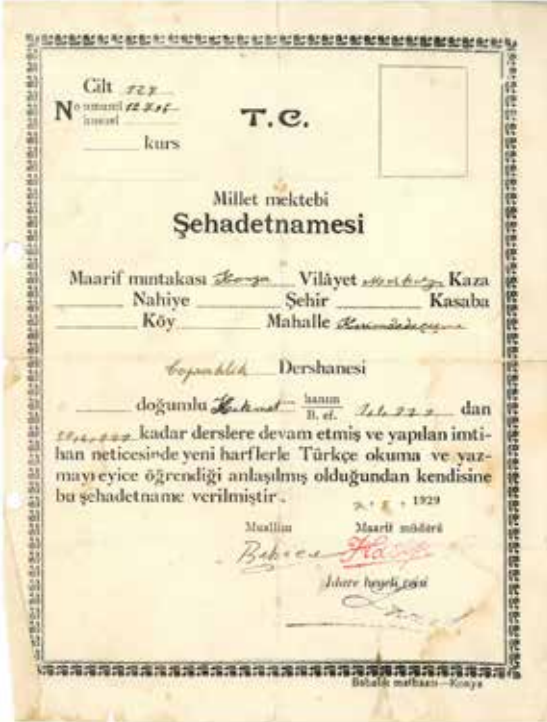 Cilt 127
No umumî
hususî
kurs
T.C.
Millet mektebi
Şehadetnamesi
Maarif mıntakası Konya Vilâyet Merkez Kaza
Nahiye Şehir Kasaba
Köy Mahalle
Dershanesi
doğumlu Hikmet hanım dan
B. ef.
kadar derslere devam etmiş ve yapılan imti-
han neticesinde yeni harflerle Türkçe okuma ve yaz-
mayı eyice öğrendiği anlaşılmış olduğundan kendisine
bu şehadetname verilmiştir.
1929
Muallim Maarif müdürü
Behice
İdare heyeti reisi
Babalık matbaası—Konya